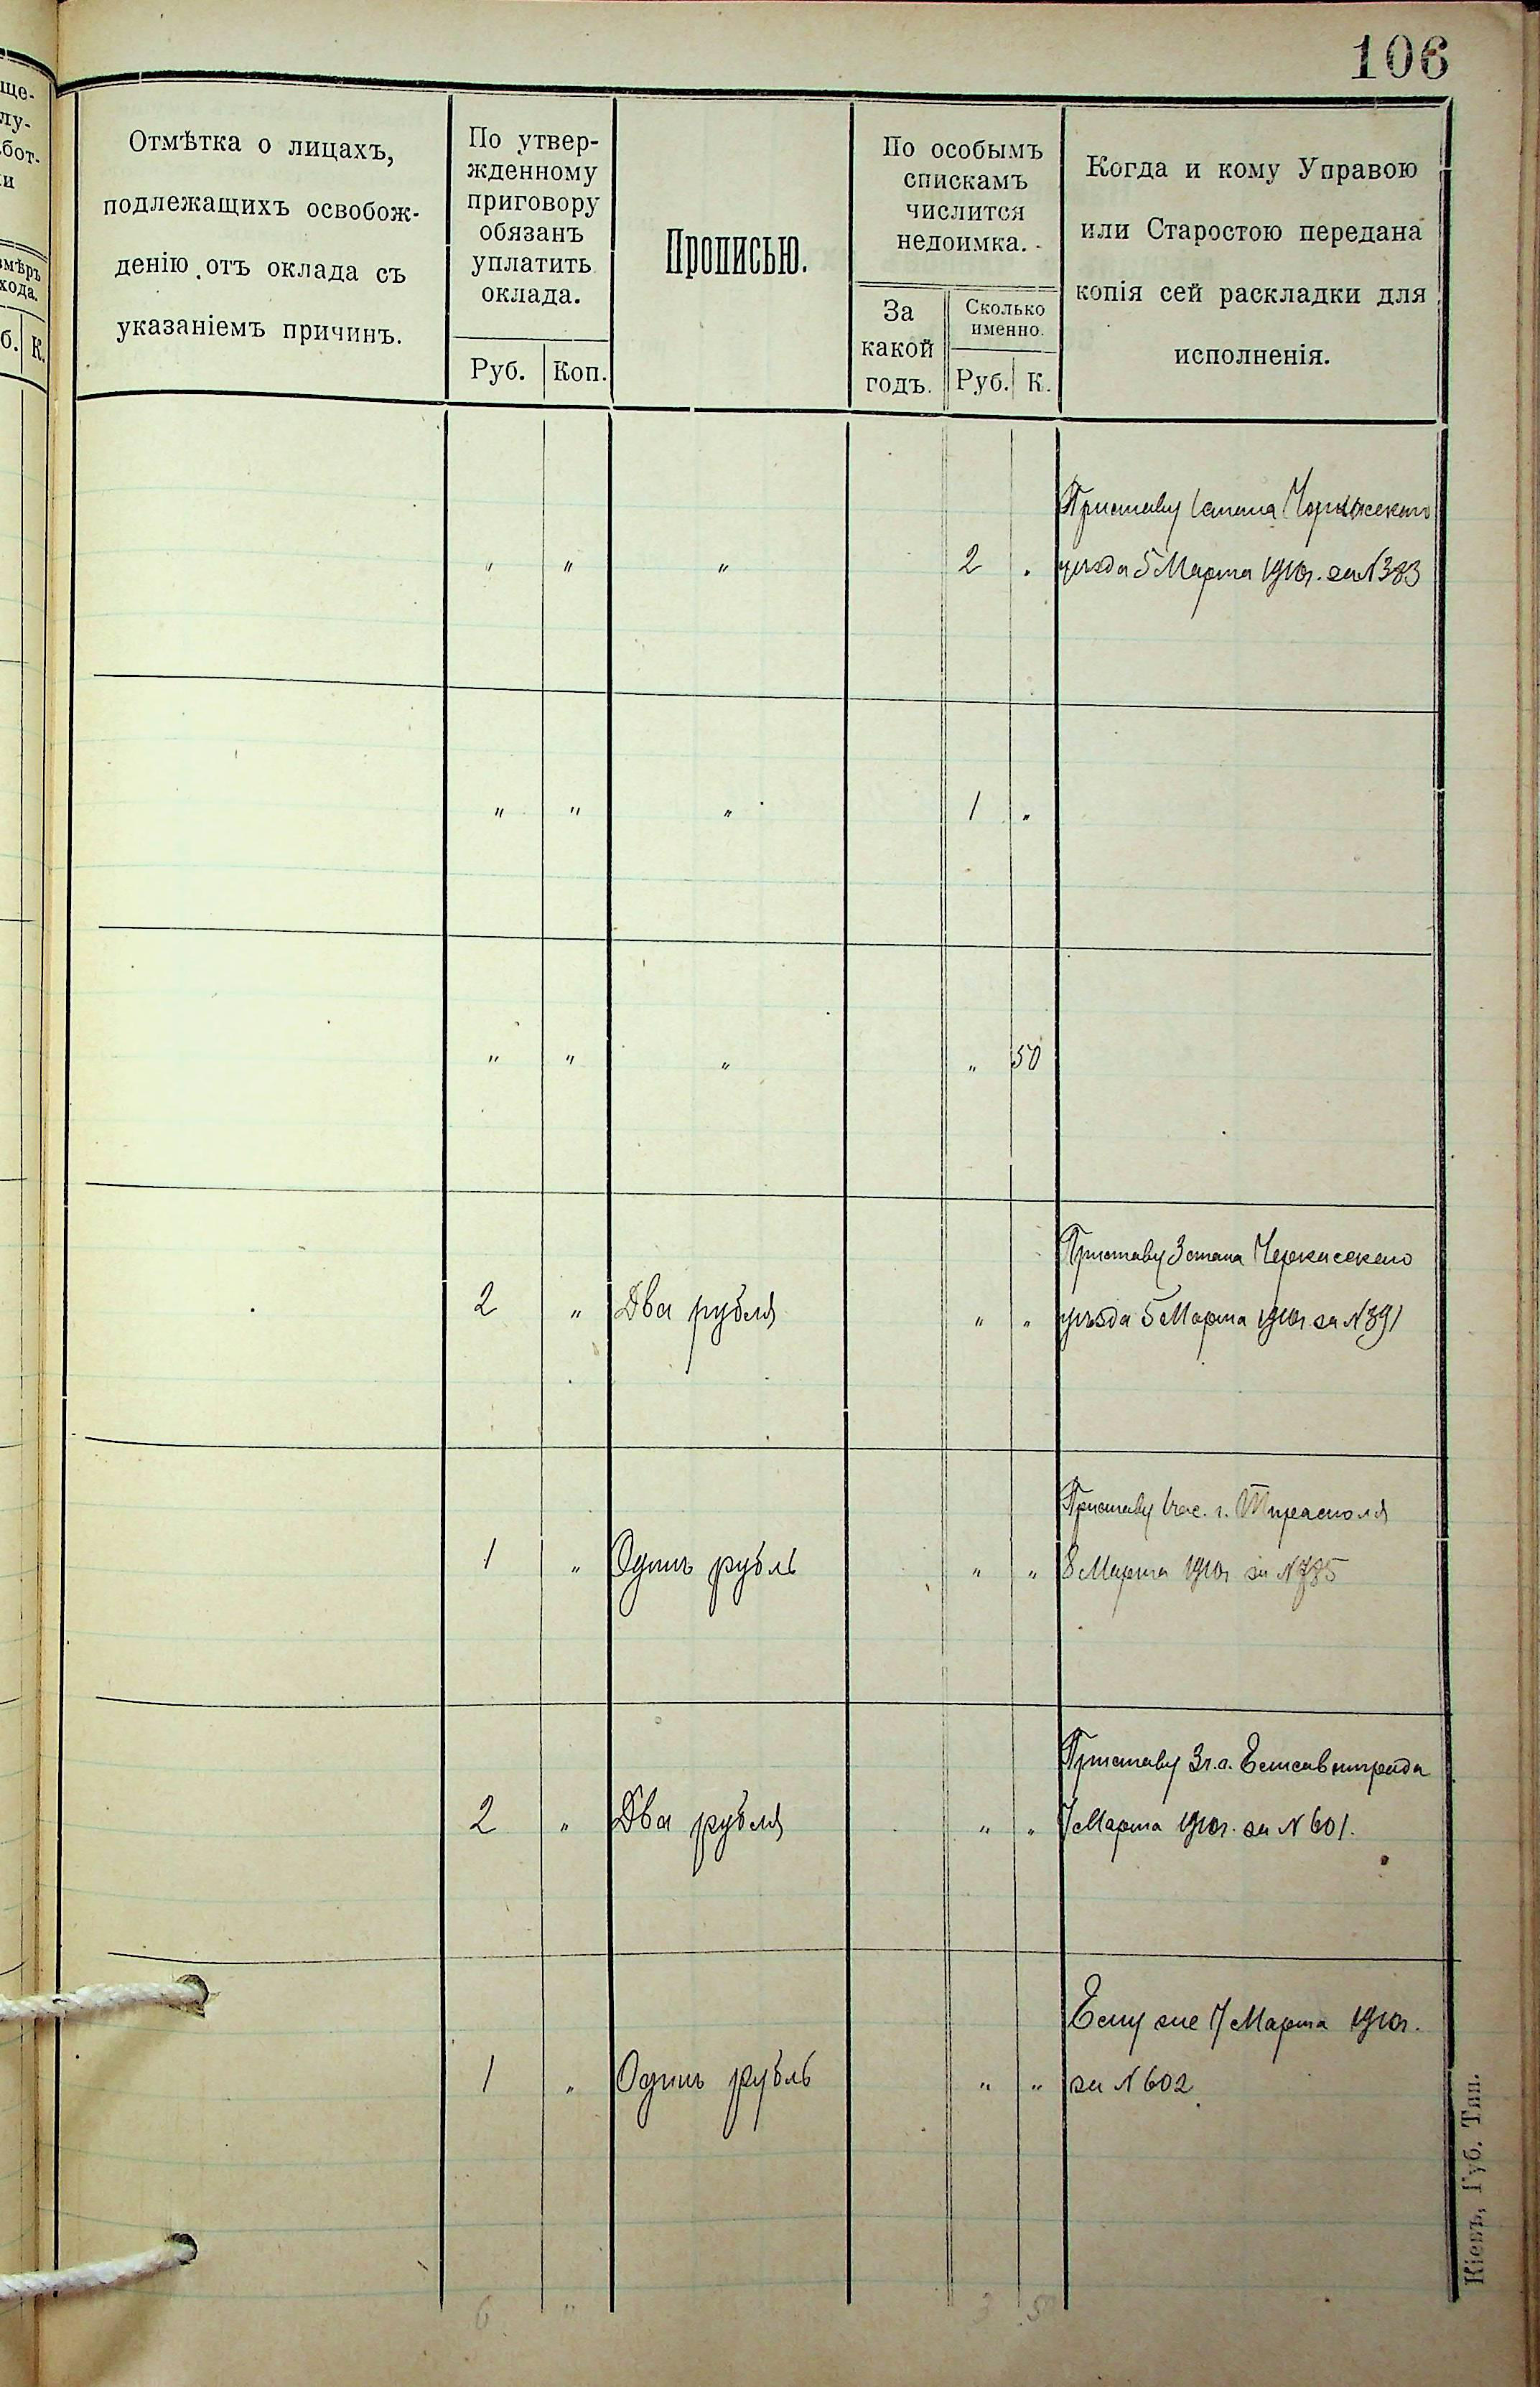 106
ще-
лу-
бот-
и
змѣръ
хода.
б. К.
Отмѣтка о лицахъ,
подлежащихъ освобож-
денію отъ оклада съ
указаніемъ причинъ.
По утвер-
жденному
приговору
обязанъ
уплатить
оклада.
Руб. Коп.
Прописью.
По особымъ
спискамъ
числится
недоимка.
За
какой
годъ.
Сколько
именно.
Руб. К.
Когда и кому Управою
или Старостою передана
копія сей раскладки для
исполненія.
Приставу 1 стана Черкасскаго
" " " 2 " уѣзда 5 Марта 1910г. за N 383
" " " 1 "
" " " " 50
Приставу 3 стана Черкасскаго
2 " Два рубля " " уѣзда 5 Марта 1910г за N 391
Приставу 1 час. г. Тирасполя
1 " Одинъ рубль " " 8 Марта 1910г за N 785
Приставу 3 ч. г. Елисаветграда
2 " Два рубля " " 7 Марта 1910г. за N 601.
Ему же 7 Марта 1910г.
1 " Одинъ рубль " " за N 602
6 " 3 50
Кіевъ, Губ. Тип.